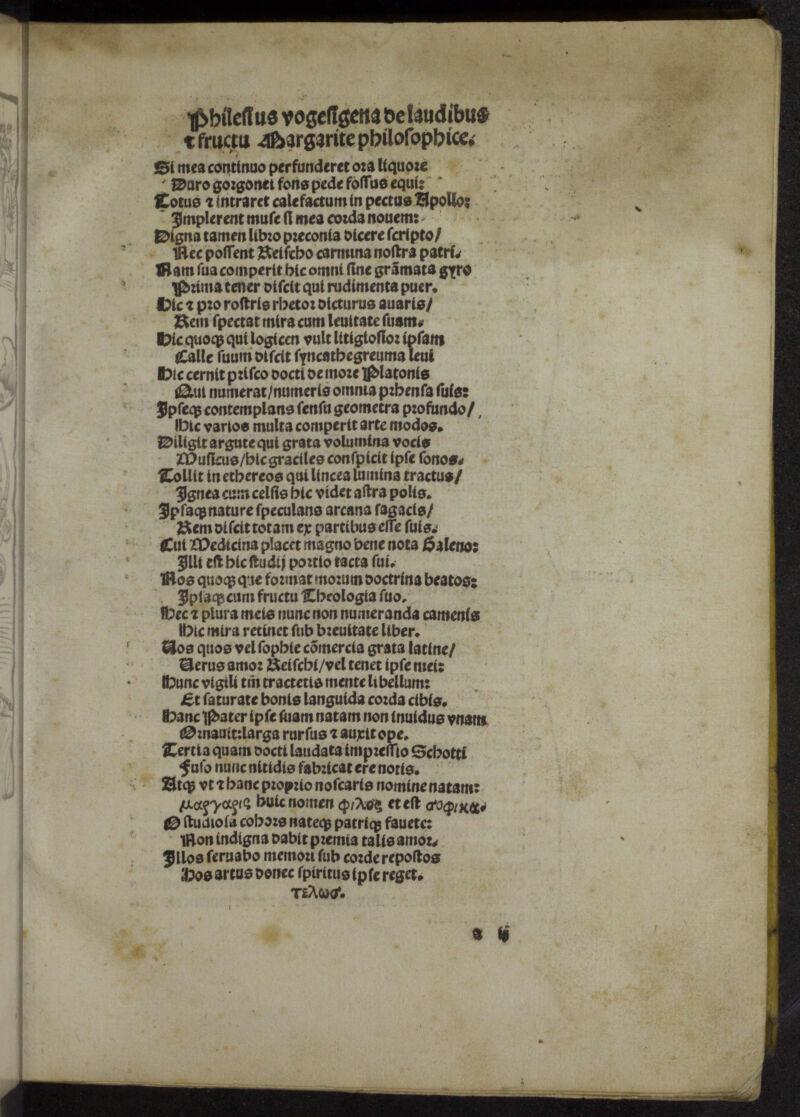 Philesius vogesigena de laudibus
⁊ fructu Margarite philosophice.
Si mea continuo perfunderet ora liquore
Duro gorgonei fons pede fossus equi:
Totus ⁊ intraret calefactum in pectus Apollo:
Implerent muse si mea corda nouem:
Digna tamen libro preconia dicere scripto/
Nec possent Reischo carmina nostra patri.
Nam sua comperit hic omni sine grãmata gyro
Prima tener discit qui rudimenta puer.
Hic ⁊ pro rostris rhetor dicturus auaris/
Rem spectat mira cum leuitate suam.
Hic quoqꝫ qui logicen vult litigiosior ipsam
Calle suum discit syncathegreuma leui
Hic cernit prisco docti de more Platonis
Qui numerat/numeris omnia prhensa suis:
Ipseqꝫ contemplans sensu geometra profundo/
Hic varios multa comperit arte modos.
Diligit argute qui grata volumina vocis
Musicus/hic graciles conspicit ipse sonos.
Tollit in ethereos qui lincea lumina tractus/
Ignea cum celsis hic videt astra polis.
Ipsaqꝫ nature speculans arcana sagacis/
Rem discit totam ex partibus esse suis.
Cui Medicina placet magno bene nota Galeno:
Illi est hic studij portio tacta sui.
Nos quoqꝫ que format morum doctrina beatos:
Ipsaqꝫ cum fructu Theologia suo.
Hec ⁊ plura meis nunc non numeranda camenis
Hic mira retinet sub breuitate liber.
Vos quos vel sophie cõmercia grata latine/
Verus amor Reischi/vel tenet ipse mei:
Hunc vigili tm̃ tractetis mente libellum:
Et saturate bonis languida corda cibis.
Hanc Pater ipse suam natam non inuidus vnam
Ornauit:larga rursus ⁊ auxit ope.
Tertia quam docti laudata impressio Schotti
Fuso nunc nitidis fabricat ere notis.
Atqꝫ vt ⁊ hanc proprio noscaris nomine natam:
μαργαρις huic nomen φιλος et est σοφικα.
O studiosa cohors nateqꝫ patriqꝫ fauete:
Non indigna dabit premia talis amor.
Illos seruabo memori sub corde repostos
Hos artus donec spiritus ipse reget.
τελωσ.
a ij